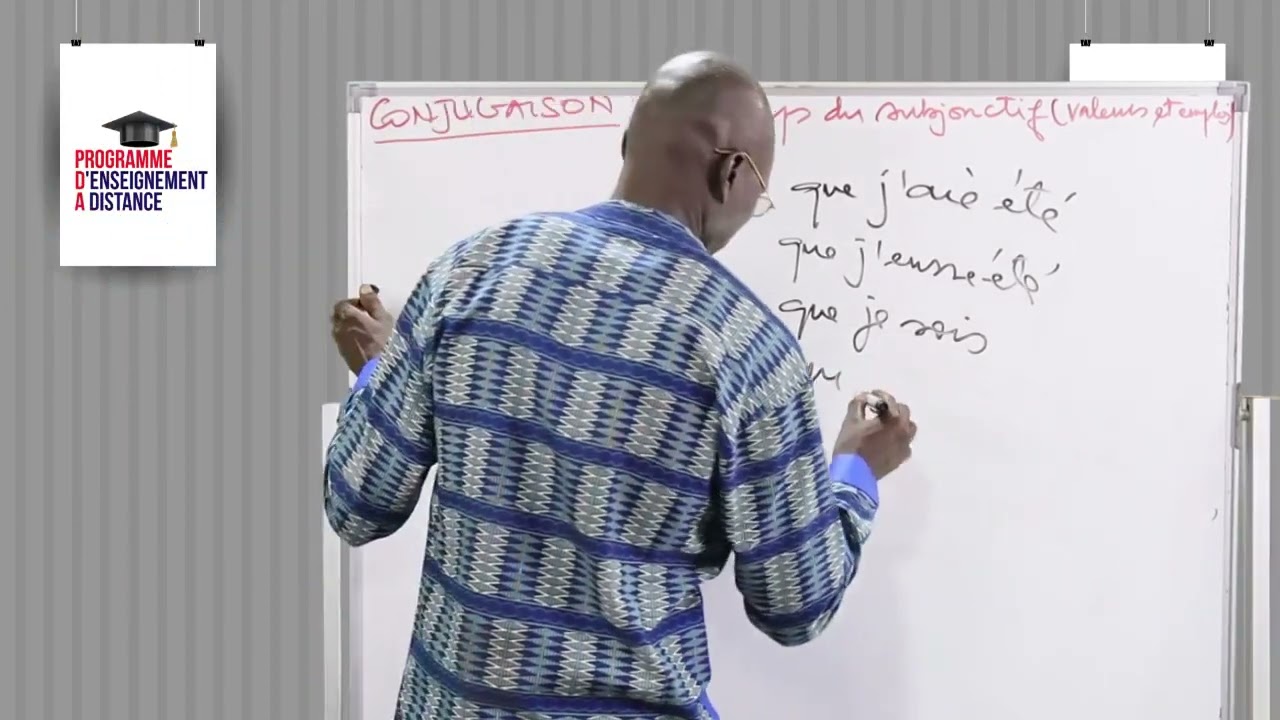 PROGRAMME
D'ENSEIGNEMENT
A DISTANCE
CONJUGAISON du subjonctif (valeurs et emplois)
que j'aie été
que j'eusse été
que je sois